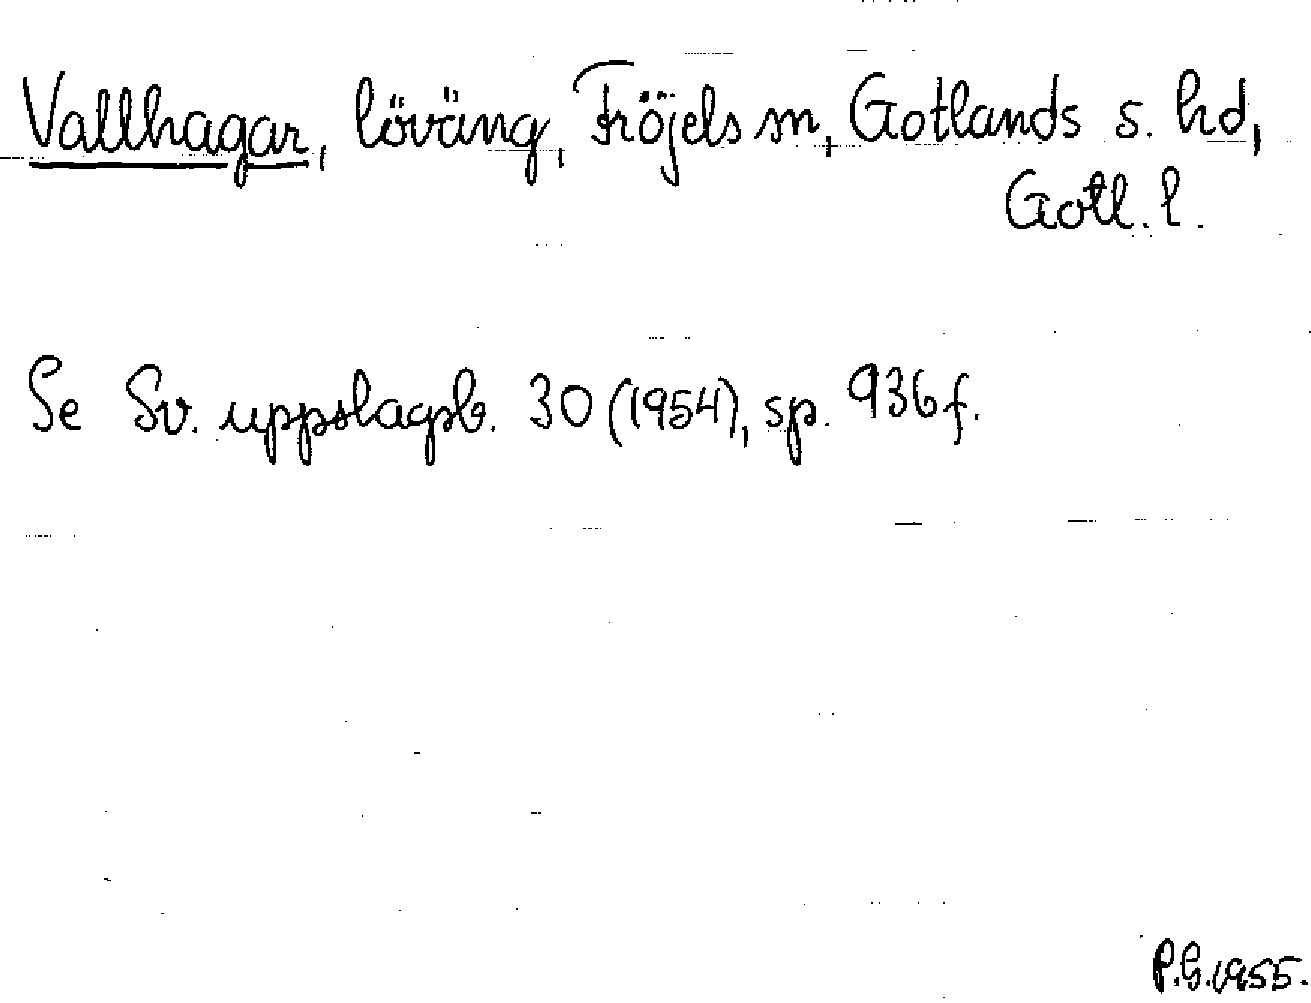 Vallhagar, löväng, Fröjels sn, Gotlands s. hd,
Gotl. l.
Se Sv. uppslagsb. 30 (1954), sp. 936 f.
P.G. 1955.